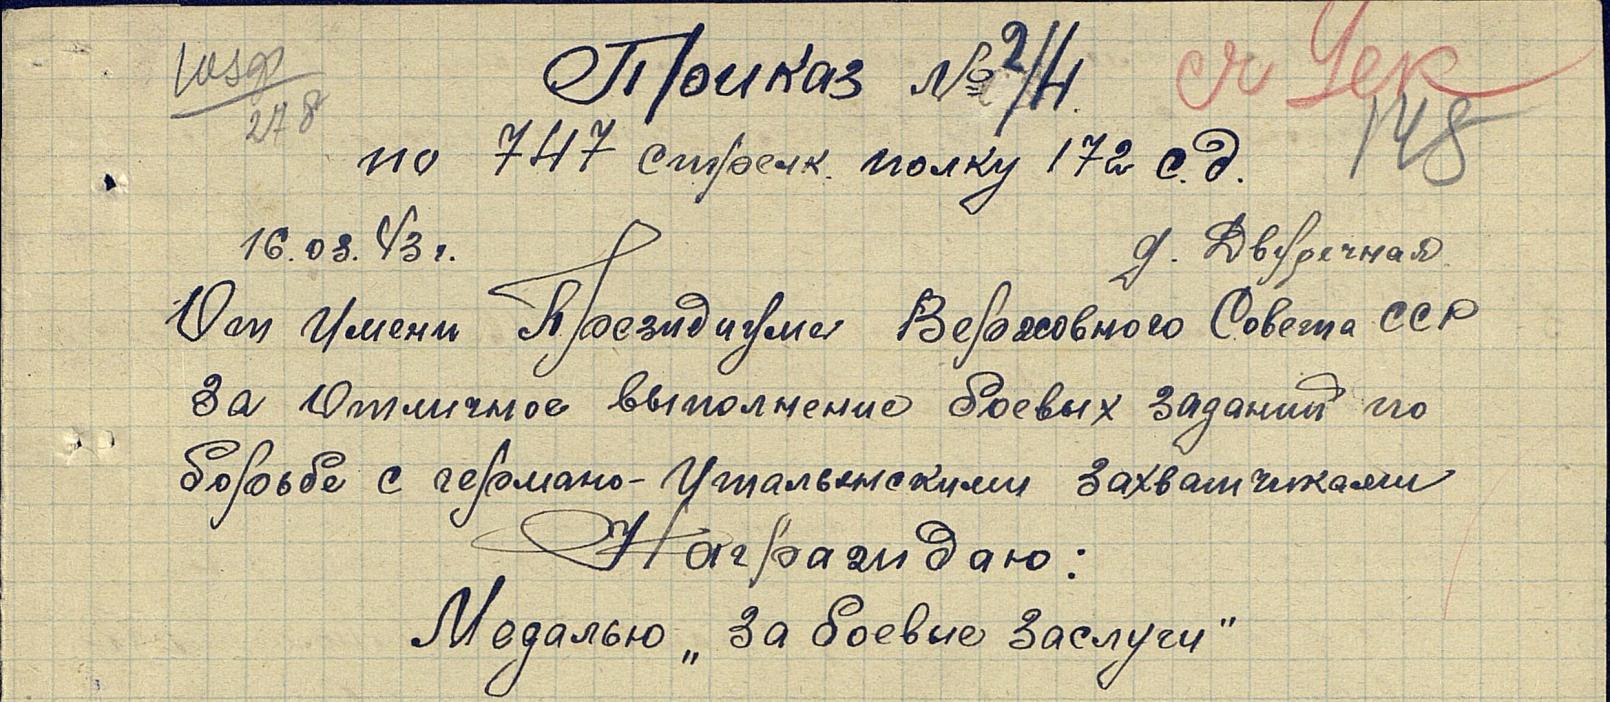 Приказ № 2/Н
278
148
по 747 стрелк. полку 172 с.д.
16.03.43г. д. Двуречная
От Имени Президиума Верховного Совета ССР
За Отличное выполнение боевых заданий по
борьбе с германо-Итальянскими захватчиками
Награждаю:
Медалью „За боевые заслуги"